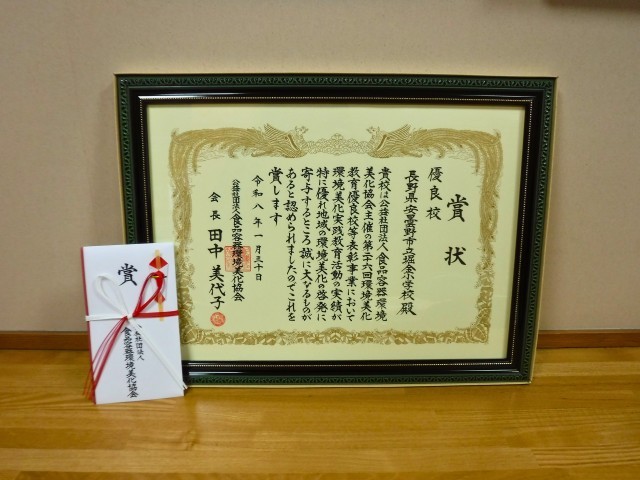 賞状
優良校
長野県安曇野市立堀金小学校 殿
貴校は公益社団法人食品容器環境
美化協会主催の第二十六回環境美化
教育優良校等表彰事業において
環境美化実践教育活動の実績が
特に優れ地域の環境美化の啓発に
寄与するところ誠に大なるものが
あると認められましたのでこれを
賞します
令和八年一月三十日
公益社団法人食品容器環境美化協会
会長 田中 美代子
賞
公益社団法人
食品容器環境美化協会